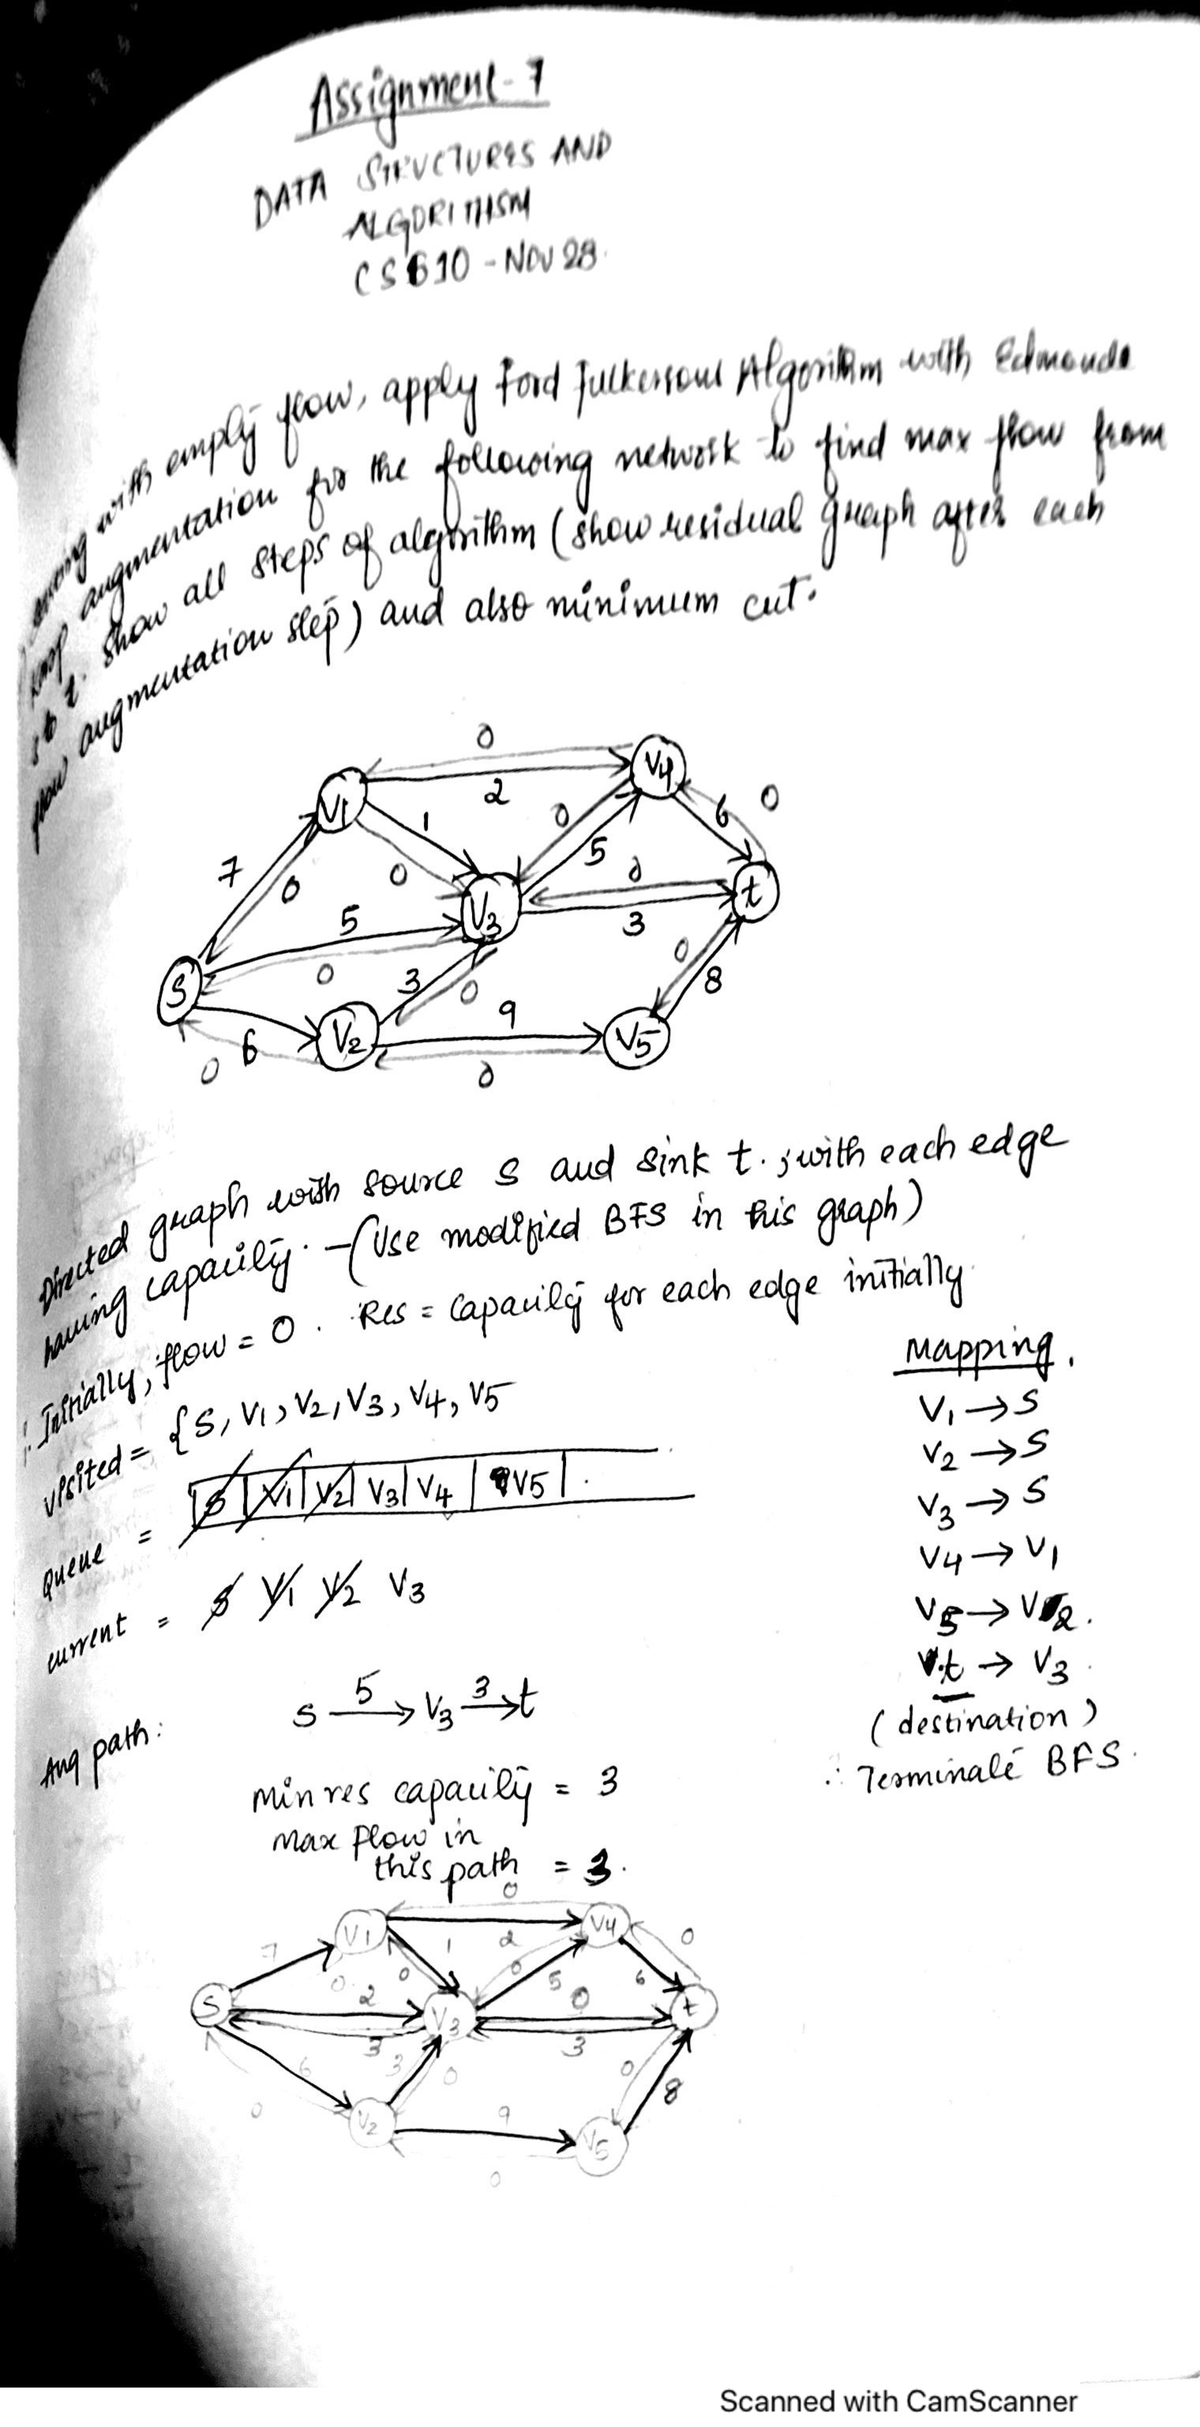 Assignment-7
DATA STRUCTURES AND
ALGORITHSM
CS610 - NOV 28.
with empty flow, apply Ford Fulkersons Algorithm with Edmonds
Karp augmentation for the following network to find max flow from
s to t. Show all steps of algorithm (show residual graph after each
flow augmentation step) and also minimum cut.
0
V4
V1
2
0
6
0
1
7
5
0
0
0
V3
t
5
3
0
S
0
3
0
8
9
6
V2
V5
0
0
Directed graph with source s and sink t. ; with each edge
having capacity. - (Use modified BFS in this graph)
∴ Initially, flow = 0. Res = Capacity for each edge initially.
Mapping.
visited = {S, V1, V2, V3, V4, V5
V1 → S
V2 → S
Queue = S V1 V2 V3 V4 V5
V3 → S
V4 → V1
current = S V1 V2 V3
V5 → V2.
t → V3
Aug path: s 5→ V3 3→ t
(destination)
∴ Terminate BFS.
Min res capacity = 3
max flow in
this path = 3.
0
V1
V4
7
1
2
0
0
0
0
5
6
S
2
0
V3
t
3
3
3
0
0
6
8
0
V2
9
V5
0
Scanned with CamScanner